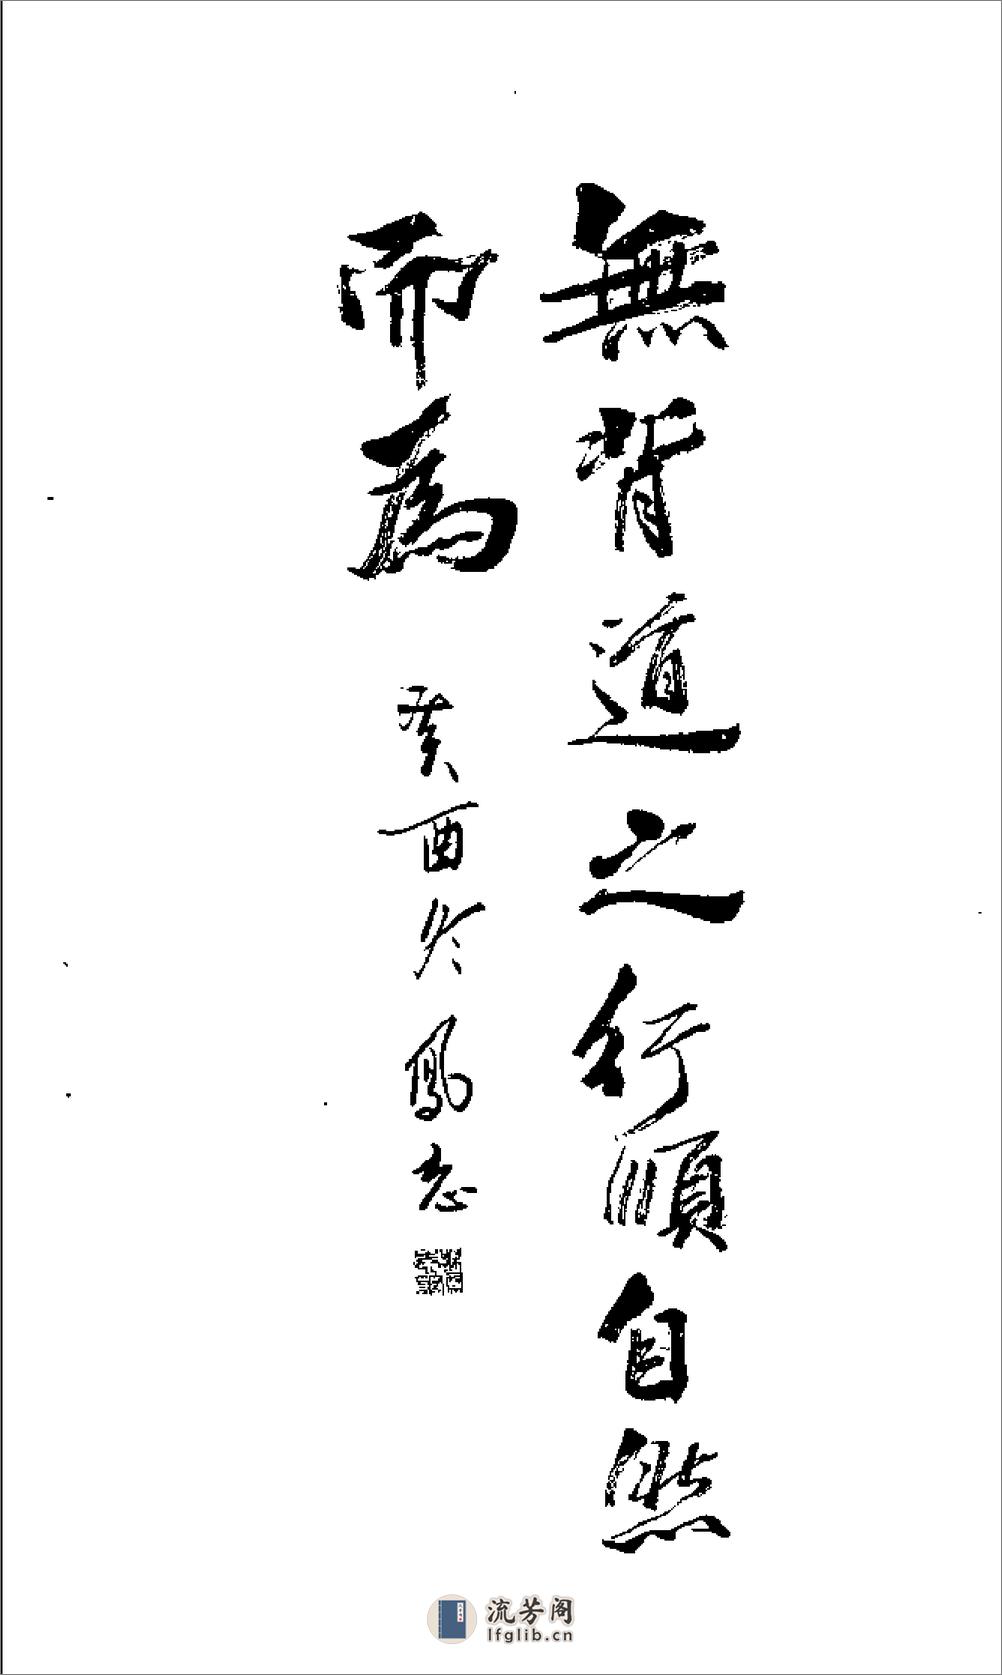 無背道之行順自然
而為
癸酉冬鳳志
流芳阁
lfglib.cn